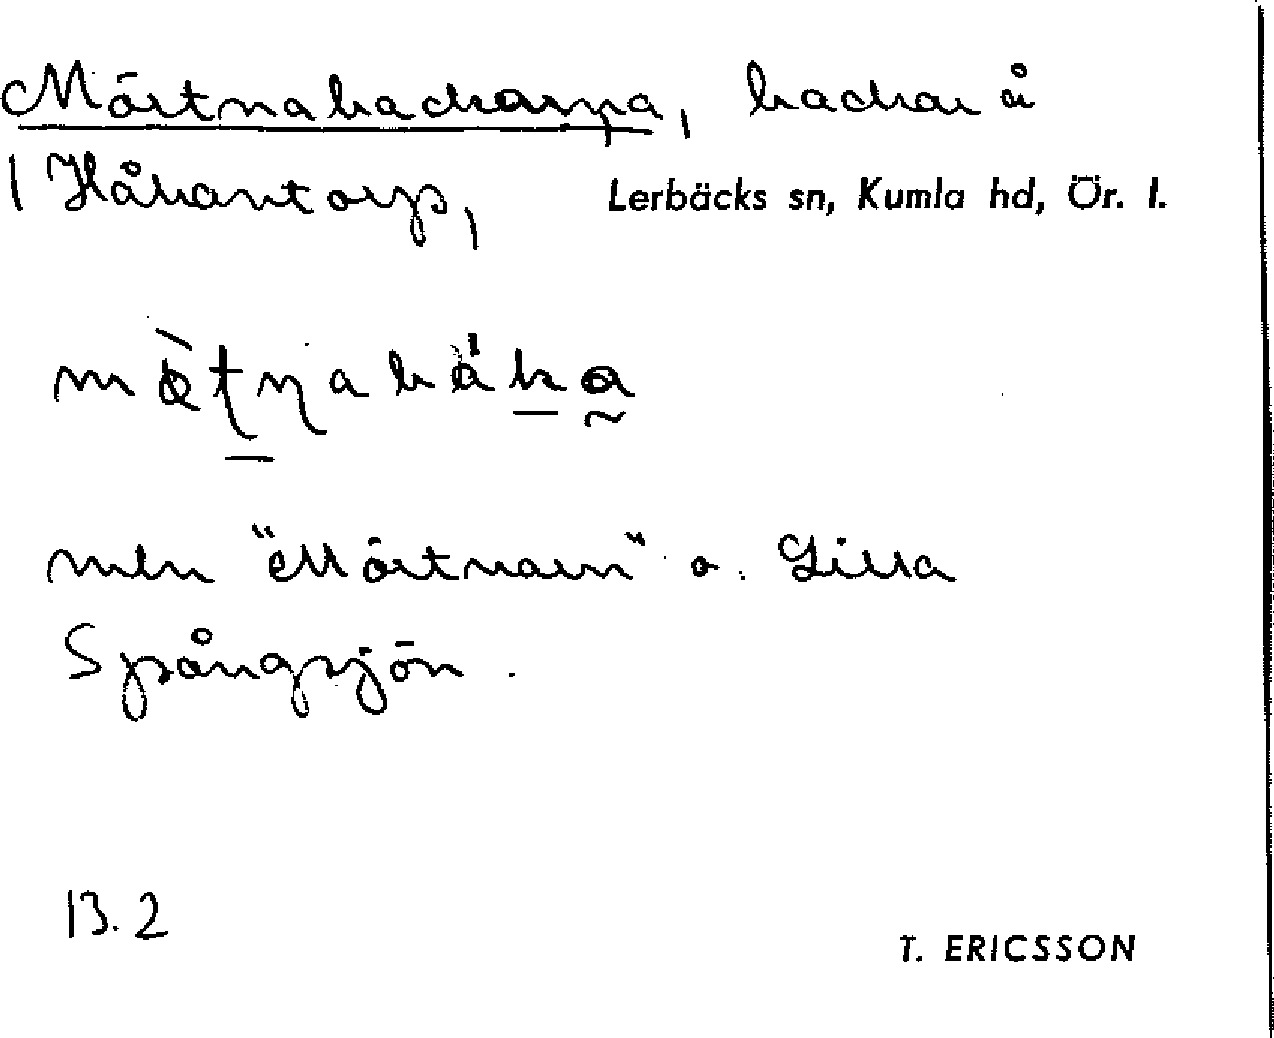 Mörtnabackarna, backar å
| Håkantorp, Lerbäcks sn, Kumla hd, Ör. l.
mellan "Mörtnarn" o. Lilla
Spångsjön.
13.2
T. ERICSSON